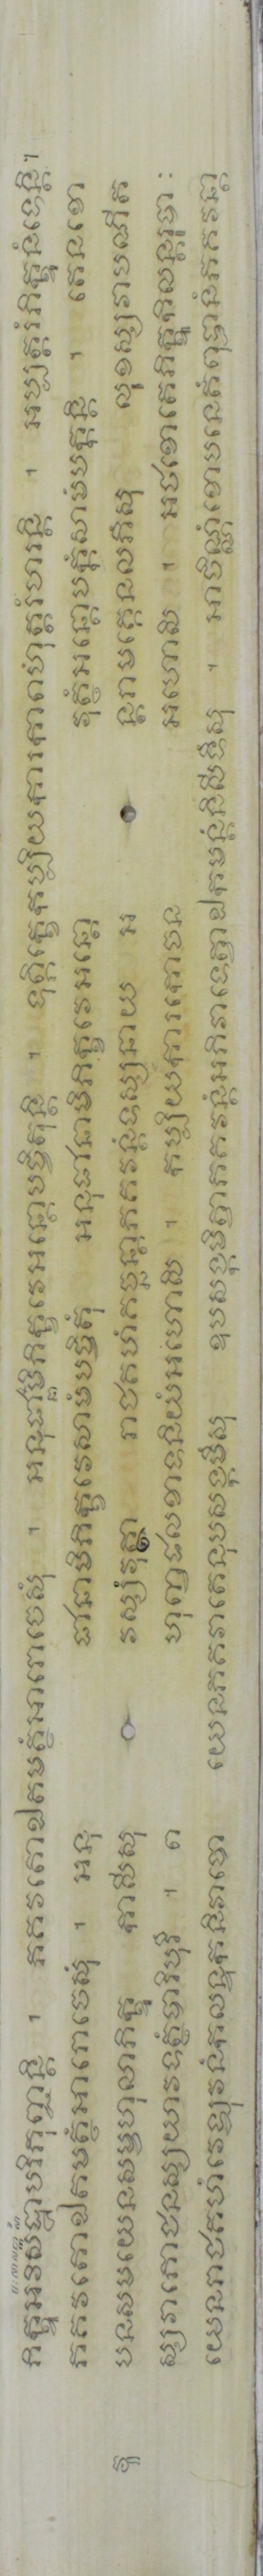 ភិក្ខូអនវសេសំប្លាបវិភុញ្ជន្តិ ។ ភគវតោឯតមត្ថំអារោចេសុំ ។ អនុជានាមិភិក្ខវេអន្តោបចិតុន្តិ ។ ទុព្ភិក្ខេកប្បិយការកាពហុត្តរំហរន្តិ ។ អប្បត្តរំភិក្ខូនំទេន្តិ។
ភគវតោឯតមត្ថំអារោចេសុំ ។ អនុជានាមិភិក្ខវេសាមំបចិតុំ អនុជានាមិភិក្ខវេអន្តោវុត្ថំអន្តោបក្កំសាមំបក្កន្តិ ។ តេនខោ
បនសមយេនសម្ពហុលាភិក្ខូ កាសីសុវស្សំវុត្ថា រាជគហំគច្ឆន្តាភគវន្តំទស្សនាយ អន្តរាមគ្គេនលភិំសុ លូខស្សវាបណីត
ស្សវាភោជនស្សយាវទត្ថំបារិបូរិំ ។ ពហុញ្ចផលខាទនិយំអហោសិ ។ កប្បិយការកោចនអហោសិ ។ អថខោតេភិក្ខូកិលន្តរូបា:
យេនរាជគហំវេឡុវនំកលន្ទកនិវាបោ យេនភគវាតេនុបសង្កមិំសុ ឧបសង្កមិត្វាភគវន្តំអភិវាទេត្វាឯកមន្តំនិសីទិំសុ ។ អាចិណ្ណំខោបនេតំពុទ្ធានំភគវន្តា